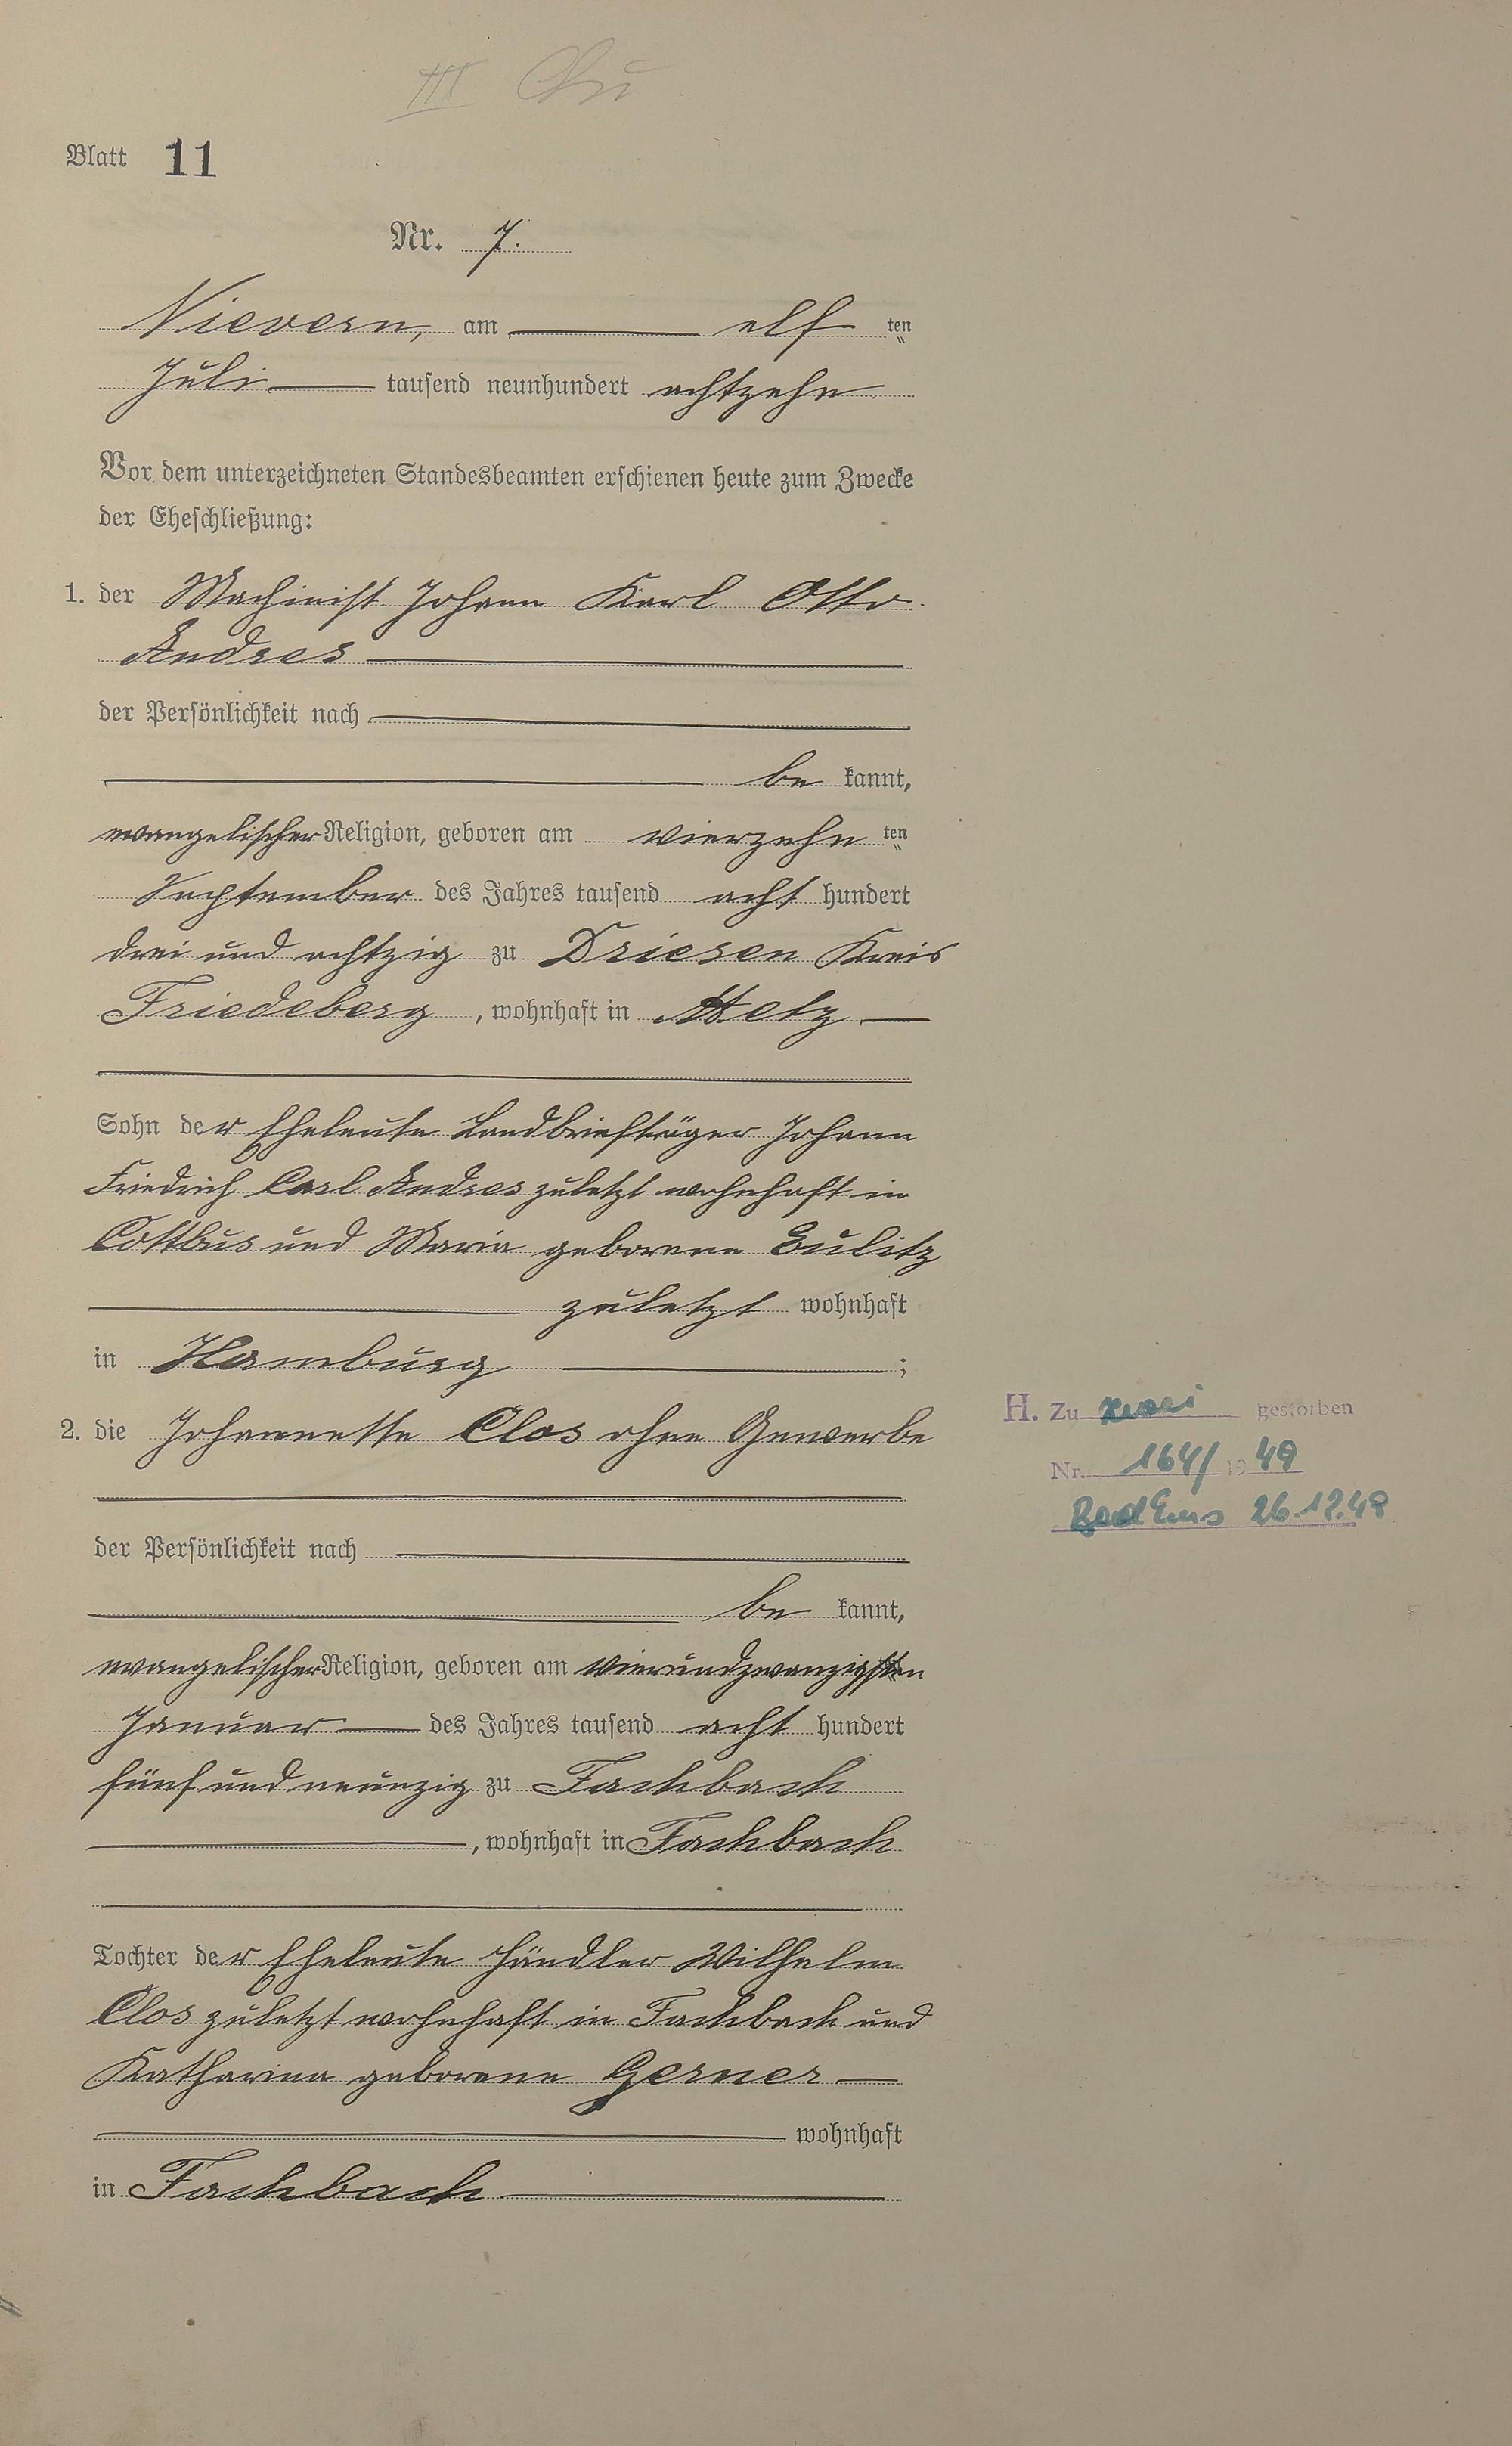 III
Blatt 11
Nr. 7.
Nievern, am elf ten
Juli tausend neunhundert achtzehn
Vor dem unterzeichneten Standesbeamten erschienen heute zum Zwecke
der Eheschließung:
1. der Maschinist Johann Karl Otto
Andres
der Persönlichkeit nach
be kannt,
evangelischer Religion, geboren am vierzehn ten
September des Jahres tausend acht hundert
drei und achtzig zu Driesen Kreis
Friedeberg, wohnhaft in Metz
Sohn der Eheleute Landbriefträger Johann
Friedrich Carl Andres zuletzt wohnhaft in
Cottbus und Maria geborene Eulitz
zuletzt wohnhaft
in Hamburg ;
2. die Johannette Clos ohne Gewerbe
der Persönlichkeit nach
be kannt,
evangelischer Religion, geboren am vierundzwanzigsten
Januar des Jahres tausend acht hundert
fünf und neunzig zu Fachbach
, wohnhaft in Fachbach
Tochter der Eheleute Händler Wilhelm
Clos zuletzt wohnhaft in Fachbach und
Katharina geborene Gerner
wohnhaft
in Fachbach
H. Zu zwei gestorben
Nr. 164/1949
Bad Ems 26.12.49